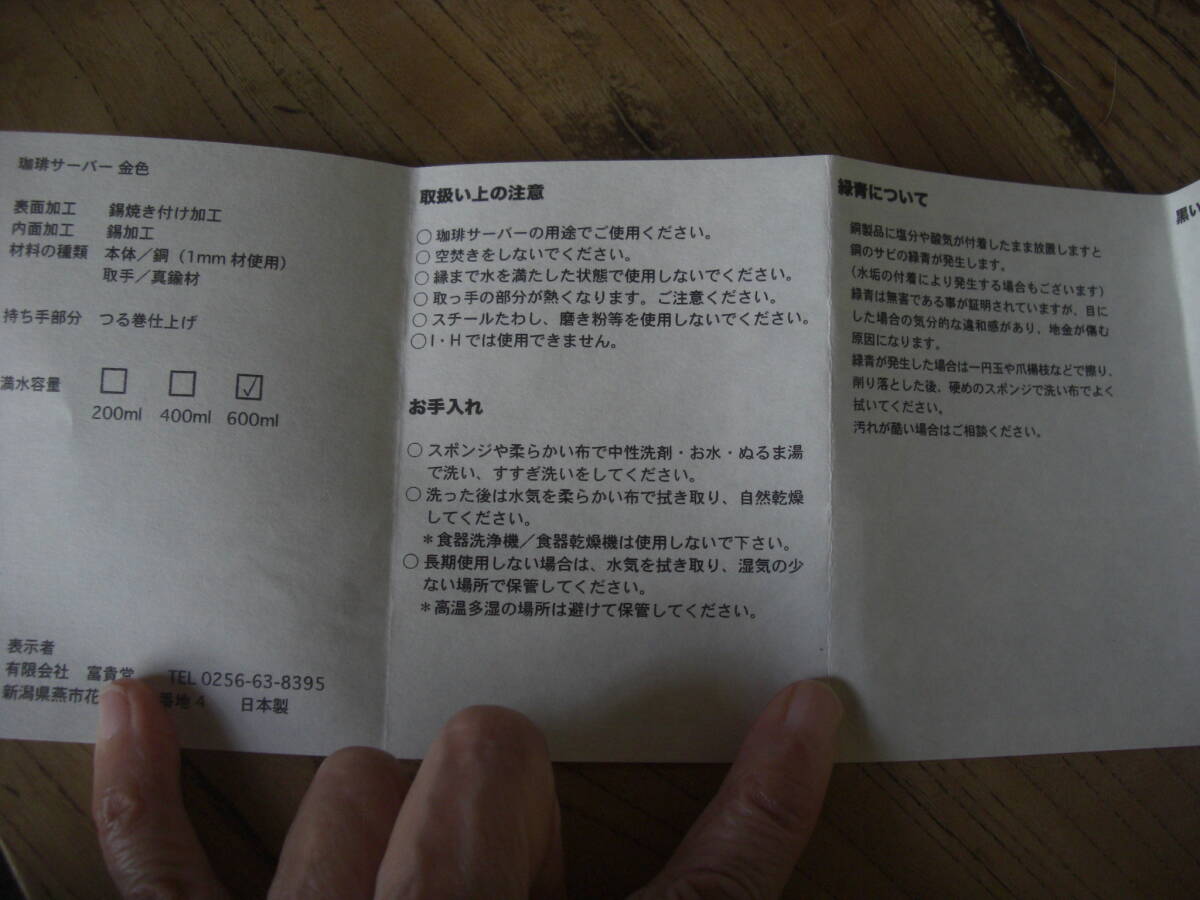 珈琲サーバー 金色
表面加工 錫焼き付け加工
内面加工 錫加工
材料の種類 本体／銅（1mm 材使用）
取手／真鍮材
持ち手部分 つる巻仕上げ
満水容量
200ml 400ml 600ml
表示者
有限会社 富貴堂 TEL 0256-63-8395
新潟県燕市花 番地 4 日本製
取扱い上の注意
○ 珈琲サーバーの用途でご使用ください。
○ 空焚きをしないでください。
○ 縁まで水を満たした状態で使用しないでください。
○ 取っ手の部分が熱くなります。ご注意ください。
○ スチールたわし、磨き粉等を使用しないでください。
○I・H では使用できません。
お手入れ
○ スポンジや柔らかい布で中性洗剤・お水・ぬるま湯
で洗い、すすぎ洗いをしてください。
○ 洗った後は水気を柔らかい布で拭き取り、自然乾燥
してください。
＊食器洗浄機／食器乾燥機は使用しないで下さい。
○ 長期使用しない場合は、水気を拭き取り、湿気の少
ない場所で保管してください。
＊高温多湿の場所は避けて保管してください。
緑青について
銅製品に塩分や酸気が付着したまま放置しますと
銅のサビの緑青が発生します。
（水垢の付着により発生する場合もございます）
緑青は無害である事が証明されていますが、目に
した場合の気分的な違和感があり、地金が傷む
原因になります。
緑青が発生した場合は一円玉や爪楊枝などで擦り、
削り落とした後、硬めのスポンジで洗い布でよく
拭いてください。
汚れが酷い場合はご相談ください。
黒い